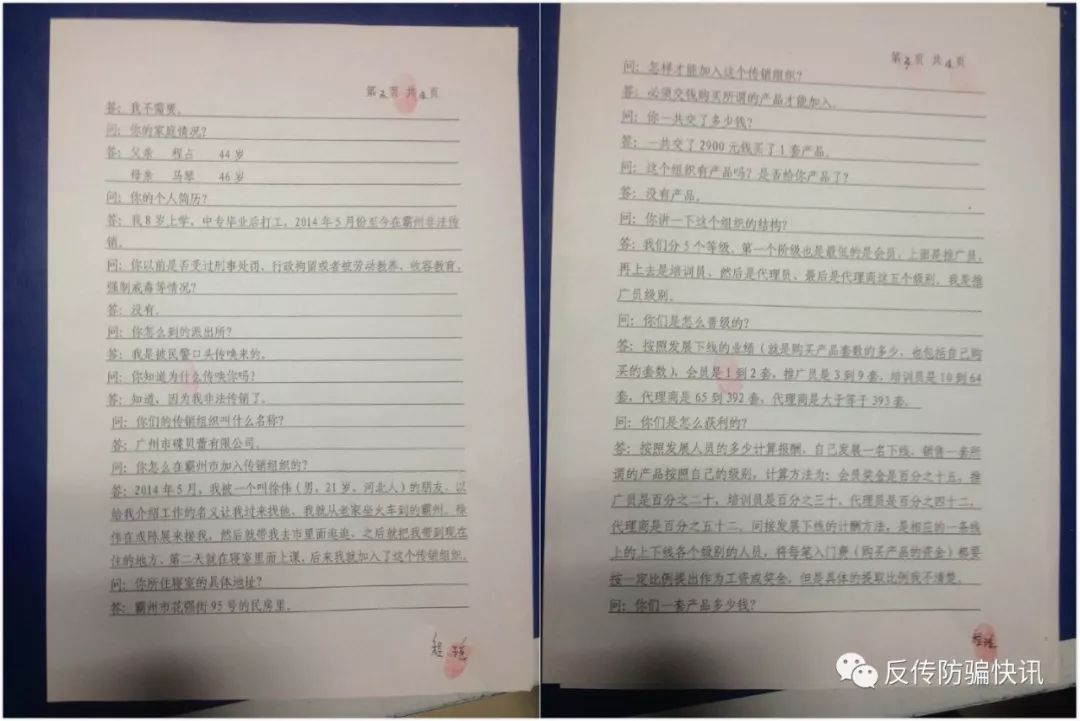 第2页 共4页
答：我不需要。
问：你的家庭情况？
答：父亲 程占 44岁
母亲 马琴 46岁
问：你的个人简历？
答：我8岁上学，中专毕业后打工，2014年5月份至今在霸州非法传
销。
问：你以前是否受过刑事处罚、行政拘留或者被劳动教养、收容教育、
强制戒毒等情况？
答：没有。
问：你怎么到的派出所？
答：我是被民警口头传唤来的。
问：你知道为什么传唤你吗？
答：知道，因为我非法传销了。
问：你们的传销组织叫什么名称？
答：广州市碟贝蕾有限公司。
问：你怎么在霸州市加入传销组织的？
答：2014年5月，我被一个叫徐伟（男，21岁，河北人）的朋友，以
给我介绍工作的名义让我过来找他，我就从老家坐火车到的霸州。徐
伟在或陈展来接我，然后就带我去市里面逛逛，之后就把我带到现在
住的地方、第二天就在寝室里面上课，后来我就加入了这个传销组织。
问：你所住寝室的具体地址？
答：霸州市花强街95号的民房里。
程
第3页 共4页
问：怎样才能加入这个传销组织？
答：必须交钱购买所谓的产品才能加入。
问：你一共交了多少钱？
答：一共交了2900元钱买了1套产品。
问：这个组织有产品吗？是否给你产品了？
答：没有产品。
问：你讲一下这个组织的结构？
答：我们分5个等级、第一个阶级也是最低的是会员，上面是推广员，
再上去是培训员、然后是代理员、最后是代理商这五个级别，我是推
广员级别。
问：你们是怎么晋级的？
答：按照发展下线的业绩（就是购买产品套数的多少，也包括自己购
买的套数），会员是1到2套，推广员是3到9套，培训员是10到64
套，代理商是65到392套，代理商是大于等于393套。
问：你们是怎么获利的？
答：按照发展人员的多少计算报酬，自己发展一名下线、销售一套所
谓的产品按照自己的级别，计算方法为：会员奖金是百分之十五，推
广员是百分之二十，培训员是百分之三十，代理员是百分之四十二，
代理商是百分之五十二，间接发展下线的计酬方法，是相应的一条线
上的上下线各个级别的人员，将每笔入门费（购买产品的资金）都要
按一定比例提出作为工资或奖金，但是具体的提取比例我不清楚。
问：你们一套产品多少钱？
程
反传防骗快讯